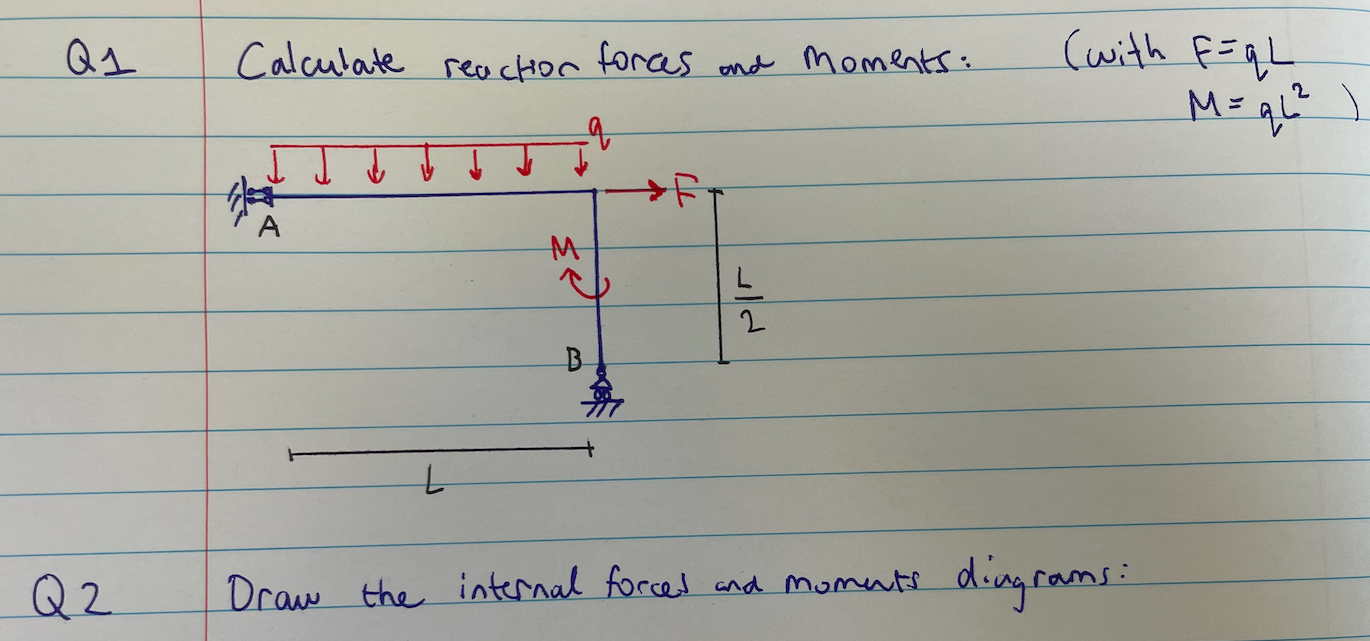 Q1 Calculate reaction forces and moments: (with F=qL
M = qL² )
q
F
A
M
L/2
B
L
Q2 Draw the internal forces and moments diagrams: